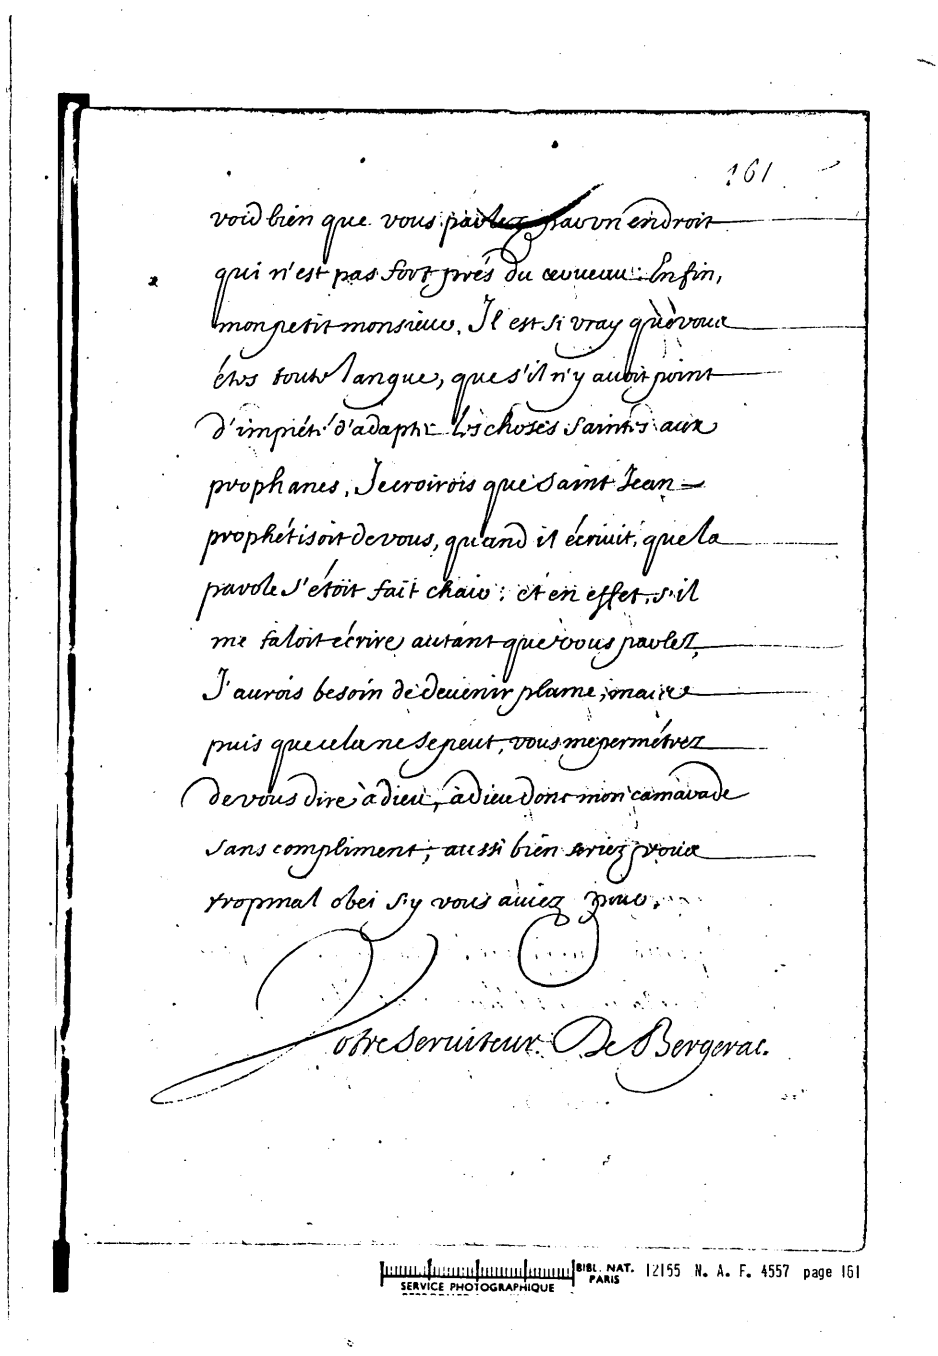 161
void bien que vous parlez par vn endroit
qui n'est pas fort prés du cerueau. Enfin,
mon petit monsieur, Il est si vray que vous
étes toute langue, que s'il n'y auoit point
d'impiété d'adapter les choses Saintes aux
prophanes, Je croirois que Saint Jean
prophétisoit de vous, quand il écriuit, que la
parole s'étoit fait chair; et en effet, s'il
me faloit écrire autant que vous parlez,
J'aurois besoin de deuenir plume, mais
puis que cela ne se peut, vous me permétrez
de vous dire àdieu, àdieu donc mon camàrade
sans compliment, aussi bien seriez vous
trop mal obei s'y vous àuiez
Votre Seruiteur. De Bergerac.
SERVICE PHOTOGRAPHIQUE
BIBL. NAT. PARIS
12155 N. A. F. 4557 page 161